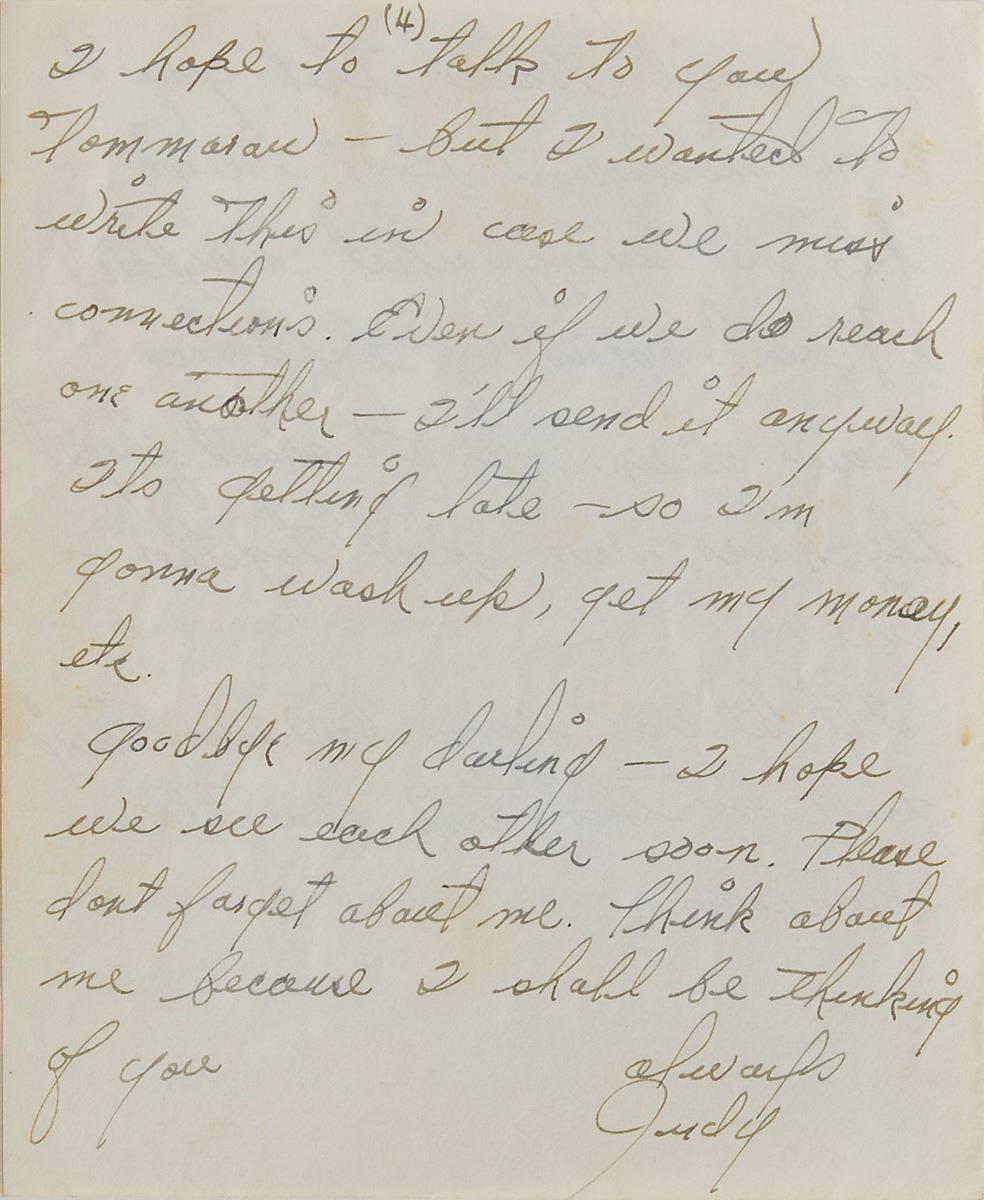 (4)
I hope to talk to you
Tommarow - but I wanted to
write this in case we miss
connections. Even if we do reach
one another - I'll send it anyway.
Its getting late - so I'm
gonna wash up, get my money,
etc.
Goodbye my darling - I hope
we see each other soon. Please
dont forget about me. Think about
me because I shall be thinking
of you always
Judy